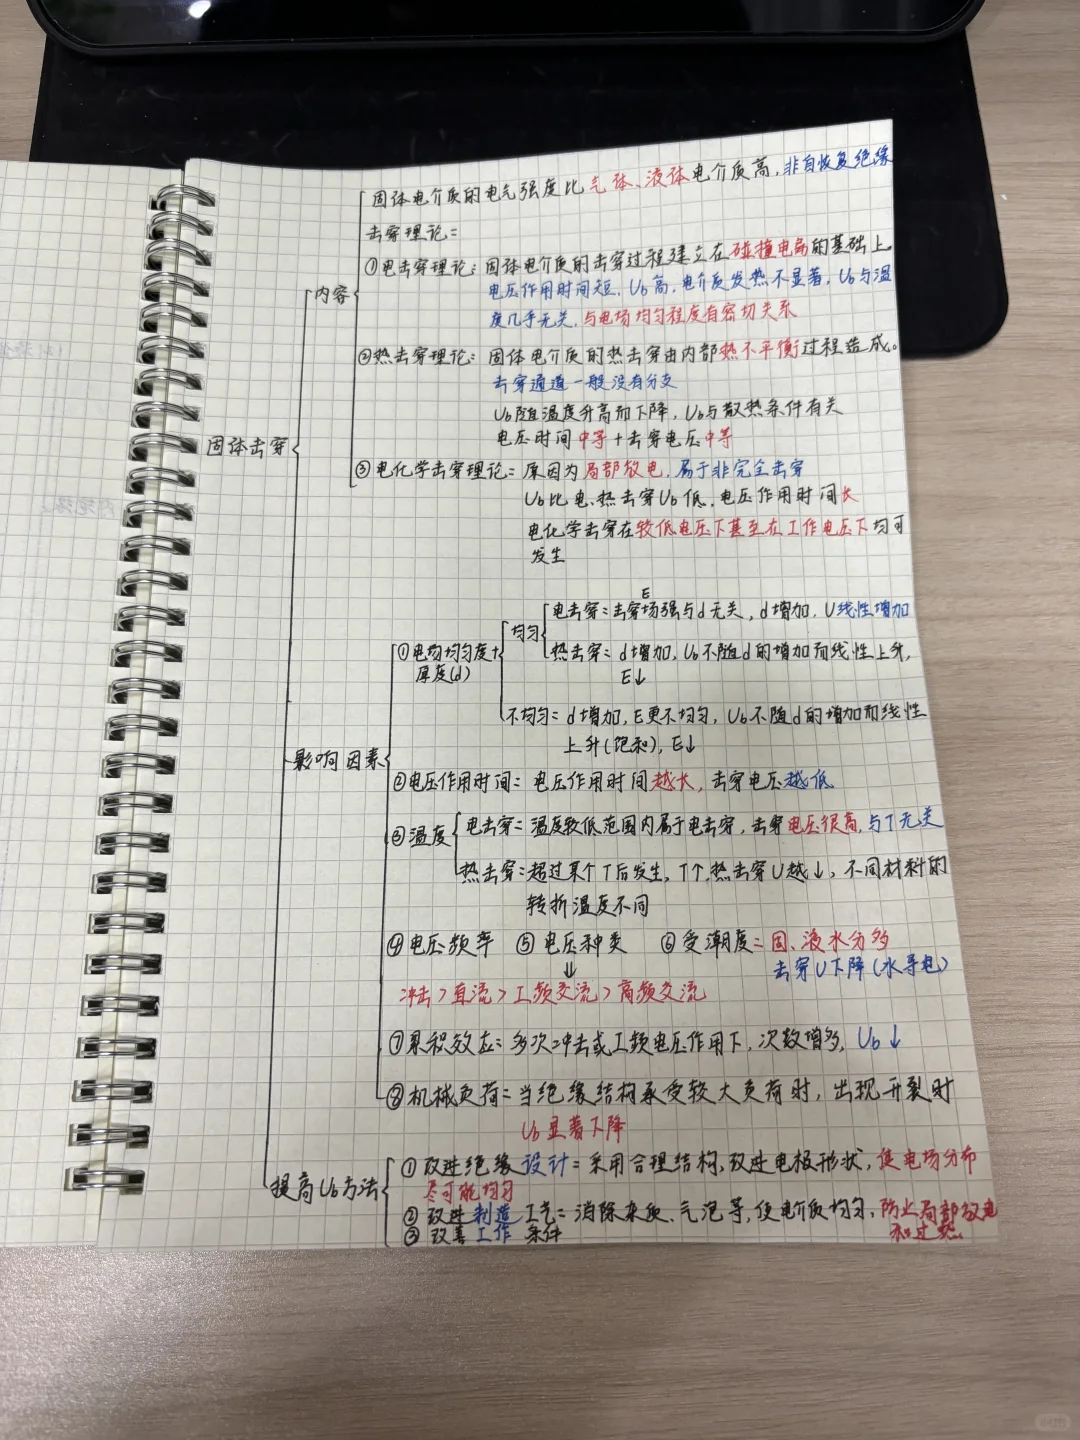 固体电介质的电气强度比气体、液体电介质高,非自恢复绝缘
击穿理论:
①电击穿理论:固体电介质的击穿过程建立在碰撞电离的基础上。
电压作用时间短,Ub高,电介质发热不显著,Ub与温
度几乎无关,与电场均匀程度有密切关系
内容
②热击穿理论:固体电介质的热击穿由内部热不平衡过程造成。
击穿通道一般没有分支
Ub随温度升高而下降,Ub与散热条件有关
电压时间中等+击穿电压中等
固体击穿
③电化学击穿理论:原因为局部放电,属于非完全击穿
Ub比电、热击穿Ub低,电压作用时间长
电化学击穿在较低电压下甚至在工作电压下均可
发生
E
电击穿:击穿场强与d无关,d增加,U线性增加
均匀
热击穿:d增加,Ub不随d的增加而线性上升,
E↓
①电场均匀度+
厚度(d)
不均匀:d增加,E更不均匀,Ub不随d的增加而线性
上升(饱和),E↓
影响因素
②电压作用时间:电压作用时间越长,击穿电压越低
③温度
电击穿:温度较低范围内属于电击穿,击穿电压很高,与T无关
热击穿:超过某个T后发生,T↑,热击穿U越↓,不同材料的
转折温度不同
④电压频率 ⑤电压种类 ⑥受潮度:固、液水分多
击穿U下降(水导电)
⇓
冲击>直流>工频交流>高频交流
⑦累积效应:多次冲击或工频电压作用下,次数增多,Ub↓
⑧机械负荷:当绝缘结构承受较大负荷时,出现开裂时
Ub显著下降
提高Ub方法
①改进绝缘设计:采用合理结构,改进电极形状,使电场分布
尽可能均匀
②改进制造工艺:消除杂质、气泡等,使电介质均匀,防止局部放电
和过热
③改善工作条件